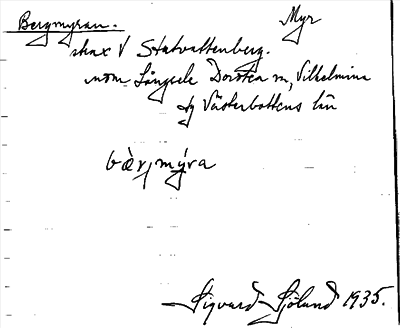 Bergmyran. Myr
strax V Stalvattenberg.
inom Långsele Dorotea sn, Vilhelmina
tg Västerbottens län
bær,mýra
Sigvard Sjölund 1935.